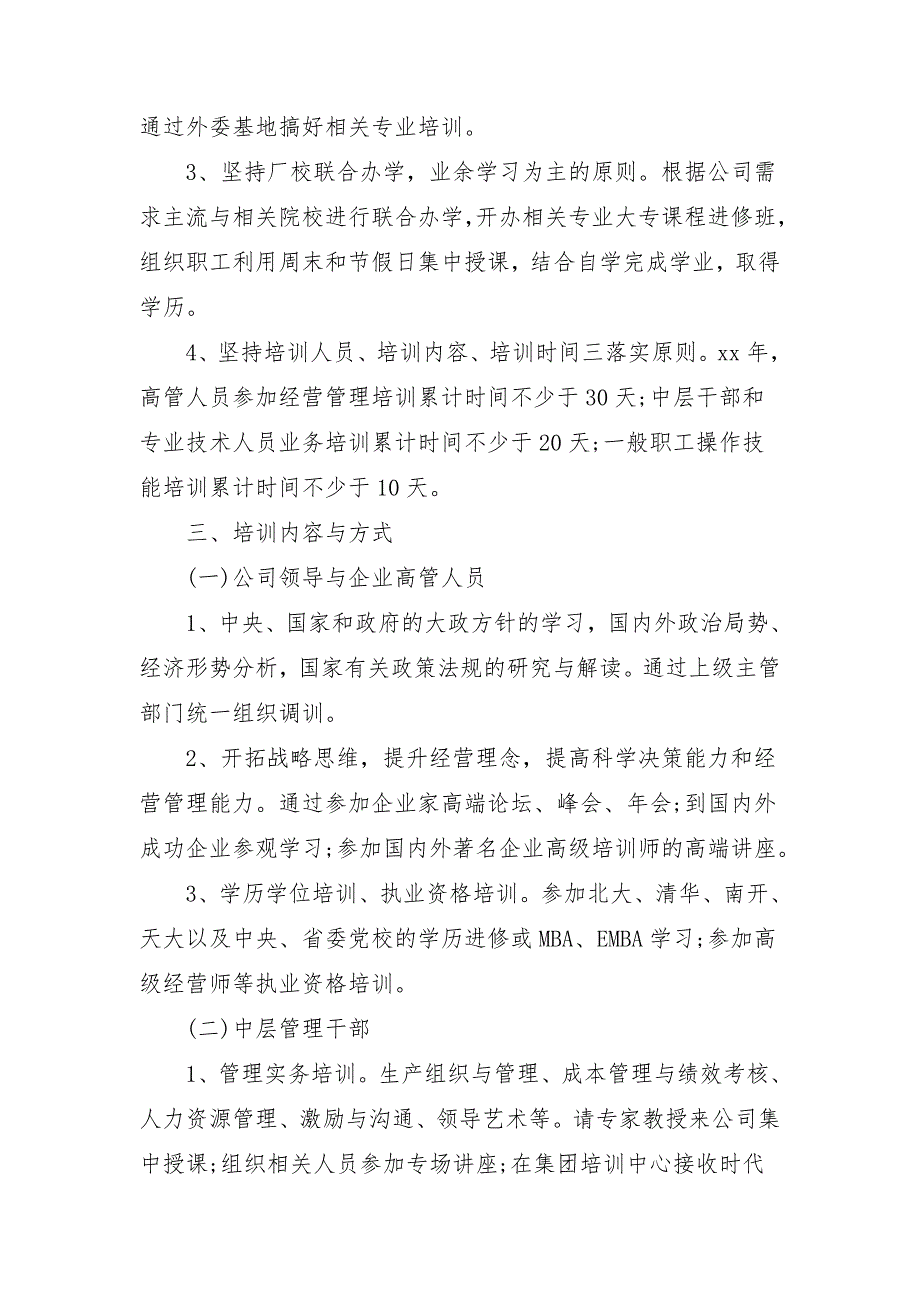 通过外委基地搞好相关专业培训。
3、坚持厂校联合办学，业余学习为主的原则。根据公司需
求主流与相关院校进行联合办学，开办相关专业大专课程进修班，
组织职工利用周末和节假日集中授课，结合自学完成学业，取得
学历。
4、坚持培训人员、培训内容、培训时间三落实原则。xx 年，
高管人员参加经营管理培训累计时间不少于 30 天;中层干部和
专业技术人员业务培训累计时间不少于 20 天;一般职工操作技
能培训累计时间不少于 10 天。
三、培训内容与方式
(一)公司领导与企业高管人员
1、中央、国家和政府的大政方针的学习，国内外政治局势、
经济形势分析，国家有关政策法规的研究与解读。通过上级主管
部门统一组织调训。
2、开拓战略思维，提升经营理念，提高科学决策能力和经
营管理能力。通过参加企业家高端论坛、峰会、年会;到国内外
成功企业参观学习;参加国内外著名企业高级培训师的高端讲座。
3、学历学位培训、执业资格培训。参加北大、清华、南开、
天大以及中央、省委党校的学历进修或 MBA、EMBA 学习;参加高
级经营师等执业资格培训。
(二)中层管理干部
1、管理实务培训。生产组织与管理、成本管理与绩效考核、
人力资源管理、激励与沟通、领导艺术等。请专家教授来公司集
中授课;组织相关人员参加专场讲座;在集团培训中心接收时代